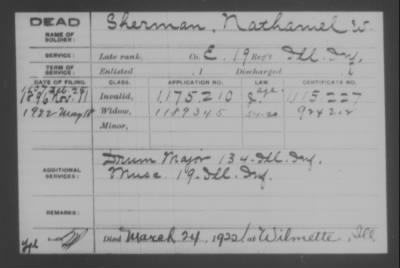 DEAD
NAME OF SOLDIER:
Sherman, Nathaniel W.
SERVICE: Late rank, Co. E, 19 Reg't Ill. Inf.
TERM OF SERVICE: Enlisted , 1 Discharged , 1
DATE OF FILING. CLASS. APPLICATION NO. CERTIFICATE NO.
1896 Nov. 11 Invalid, 1,175,210 age 1,115,227
1922 May 18 Widow, 1189345 924212
Minor,
ADDITIONAL SERVICES:
Drum Major 134 Ill. Inf.
Musc. 19 Ill. Inf.
REMARKS:
Died March 24, 1922, at Wilmette, Ill